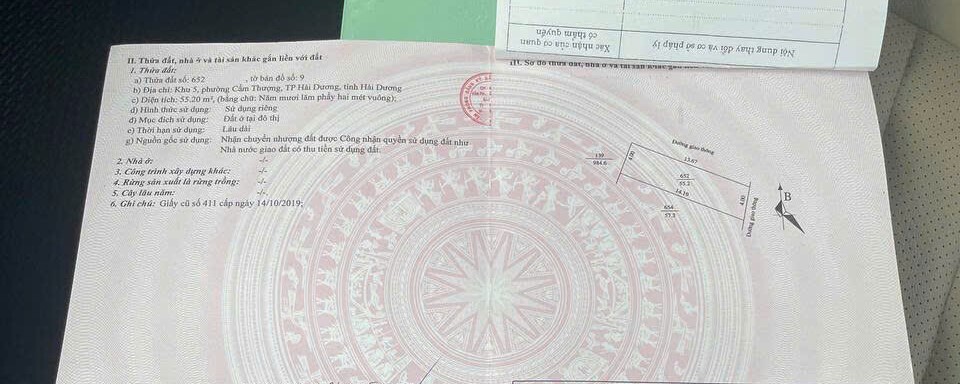 II. Thửa đất, nhà ở và tài sản khác gắn liền với đất
1. Thửa đất:
a) Thửa đất số: 652 , tờ bản đồ số: 9
b) Địa chỉ: Khu 5, phường Cẩm Thượng, TP Hải Dương, tỉnh Hải Dương
c) Diện tích: 55.20 m², (bằng chữ: Năm mươi lăm phẩy hai mét vuông);
d) Hình thức sử dụng: Sử dụng riêng
đ) Mục đích sử dụng: Đất ở tại đô thị
e) Thời hạn sử dụng: Lâu dài
g) Nguồn gốc sử dụng: Nhận chuyển nhượng đất được Công nhận quyền sử dụng đất như
Nhà nước giao đất có thu tiền sử dụng đất.
2. Nhà ở: -/-
3. Công trình xây dựng khác: -/-
4. Rừng sản xuất là rừng trồng: -/-
5. Cây lâu năm: -/-
6. Ghi chú: Giấy cũ số 411 cấp ngày 14/10/2019;
Nội dung thay đổi và cơ sở pháp lý
Xác nhận của cơ quan
có thẩm quyền
III. Sơ đồ thửa đất, nhà ở và tài sản khác gắn
Đường giao thông
139
984.6
4.00
13.67
652
55.2
14.10
4.00
654
57.2
Đường giao thông
B